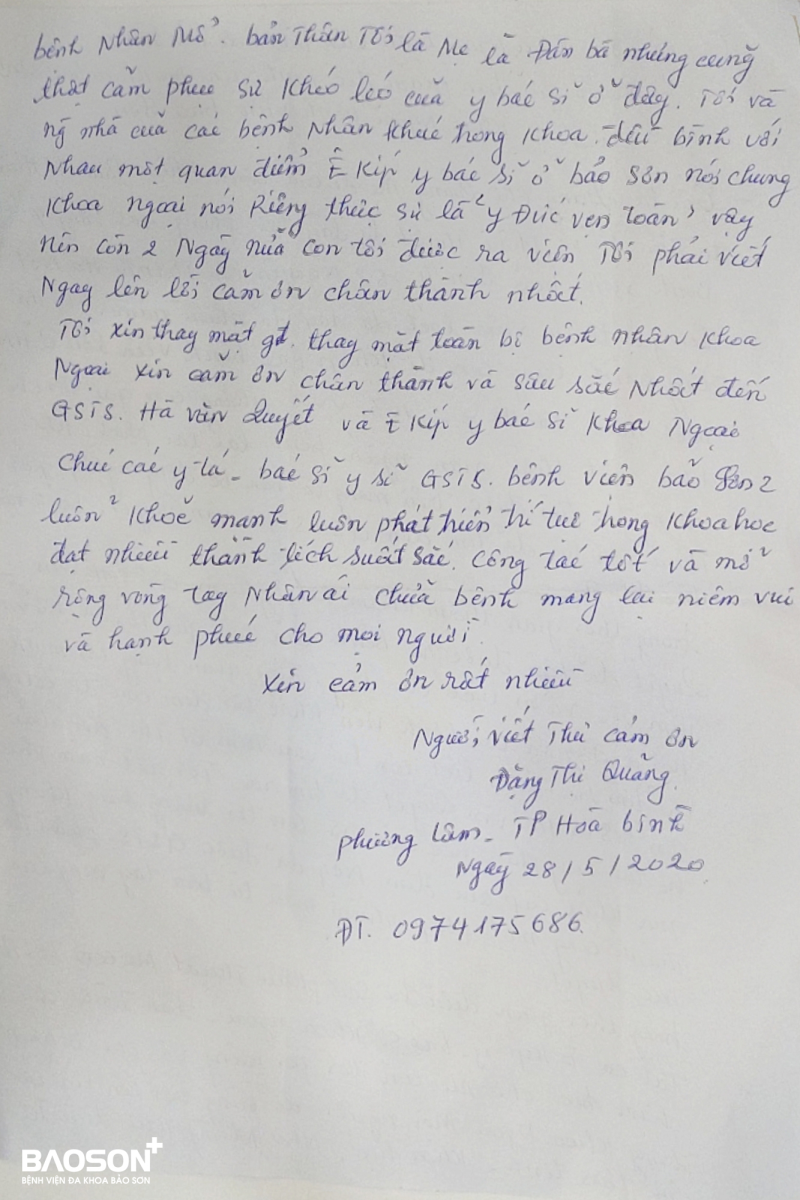 bệnh Nhân Mổ. bản Thân Tôi là Mẹ là Đàn bà nhưng cũng
thật cảm phục sự khéo léo của y bác sĩ ở đây. Tôi và
ng nhà của các bệnh Nhân khác trong khoa đều bình với
Nhau một quan điểm Ê kíp y bác sĩ ở bảo sơn nói chung
khoa ngoại nói Riêng thực sự là "y Đức vẹn toàn" vậy
nên còn 2 Ngày nữa con tôi được ra viện Tôi phải viết
Ngay lên lời cảm ơn chân thành nhất.
Tôi xin thay mặt gđ. thay mặt toàn bộ bệnh nhân khoa
Ngoại xin cảm ơn chân thành và sâu sắc Nhất đến
GSTS. Hà văn Quyết và Ê kíp y bác sĩ khoa Ngoại
chúc các y tá - bác sĩ y sĩ GSTS. bệnh viện bảo sơn 2
luôn² khoẻ mạnh luôn phát triển trí tuệ trong khoa học
đạt nhiều thành tích suất sắc. công tác tốt và mở
rộng vòng tay Nhân ái chữa bệnh mang lại niềm vui
và hạnh phúc cho mọi người.
Xin cảm ơn rất nhiều
Người viết Thư cảm ơn
Đặng Thị Quảng.
phường Lâm - TP Hoà bình
Ngày 28/5/2020
ĐT. 0974175686.
BAOSON+
BỆNH VIỆN ĐA KHOA BẢO SƠN